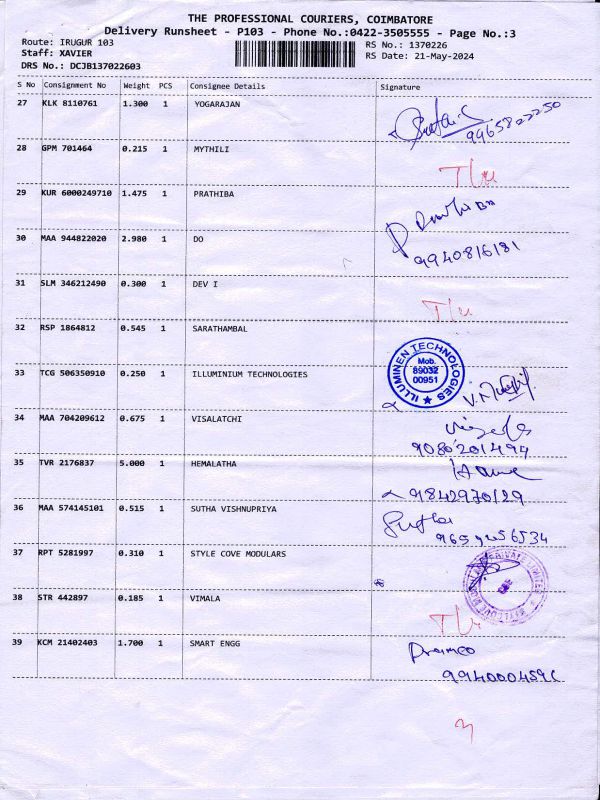 THE PROFESSIONAL COURIERS, COIMBATORE
Delivery Runsheet - P103 - Phone No.:0422-3505555 - Page No.:3
Route: IRUGUR 103 RS No.: 1370226
Staff: XAVIER RS Date: 21-May-2024
DRS No.: DCJB137022603
S No Consignment No Weight PCS Consignee Details Signature
27 KLK 8110761 1.300 1 YOGARAJAN
28 GPM 701464 0.215 1 MYTHILI
29 KUR 6000249710 1.475 1 PRATHIBA
30 MAA 944822020 2.980 1 DO
9940816181
31 SLM 346212490 0.300 1 DEV I
32 RSP 1864812 0.545 1 SARATHAMBAL
33 TCG 506350910 0.250 1 ILLUMINIUM TECHNOLOGIES
ILLUMINEN TECHNOLOGIES
Mob.
89032
00951
34 MAA 704209612 0.675 1 VISALATCHI
9080201494
35 TVR 2176837 5.000 1 HEMALATHA
9842970129
36 MAA 574145101 0.515 1 SUTHA VISHNUPRIYA
37 RPT 5281997 0.310 1 STYLE COVE MODULARS
38 STR 442897 0.185 1 VIMALA
39 KCM 21402403 1.700 1 SMART ENGG